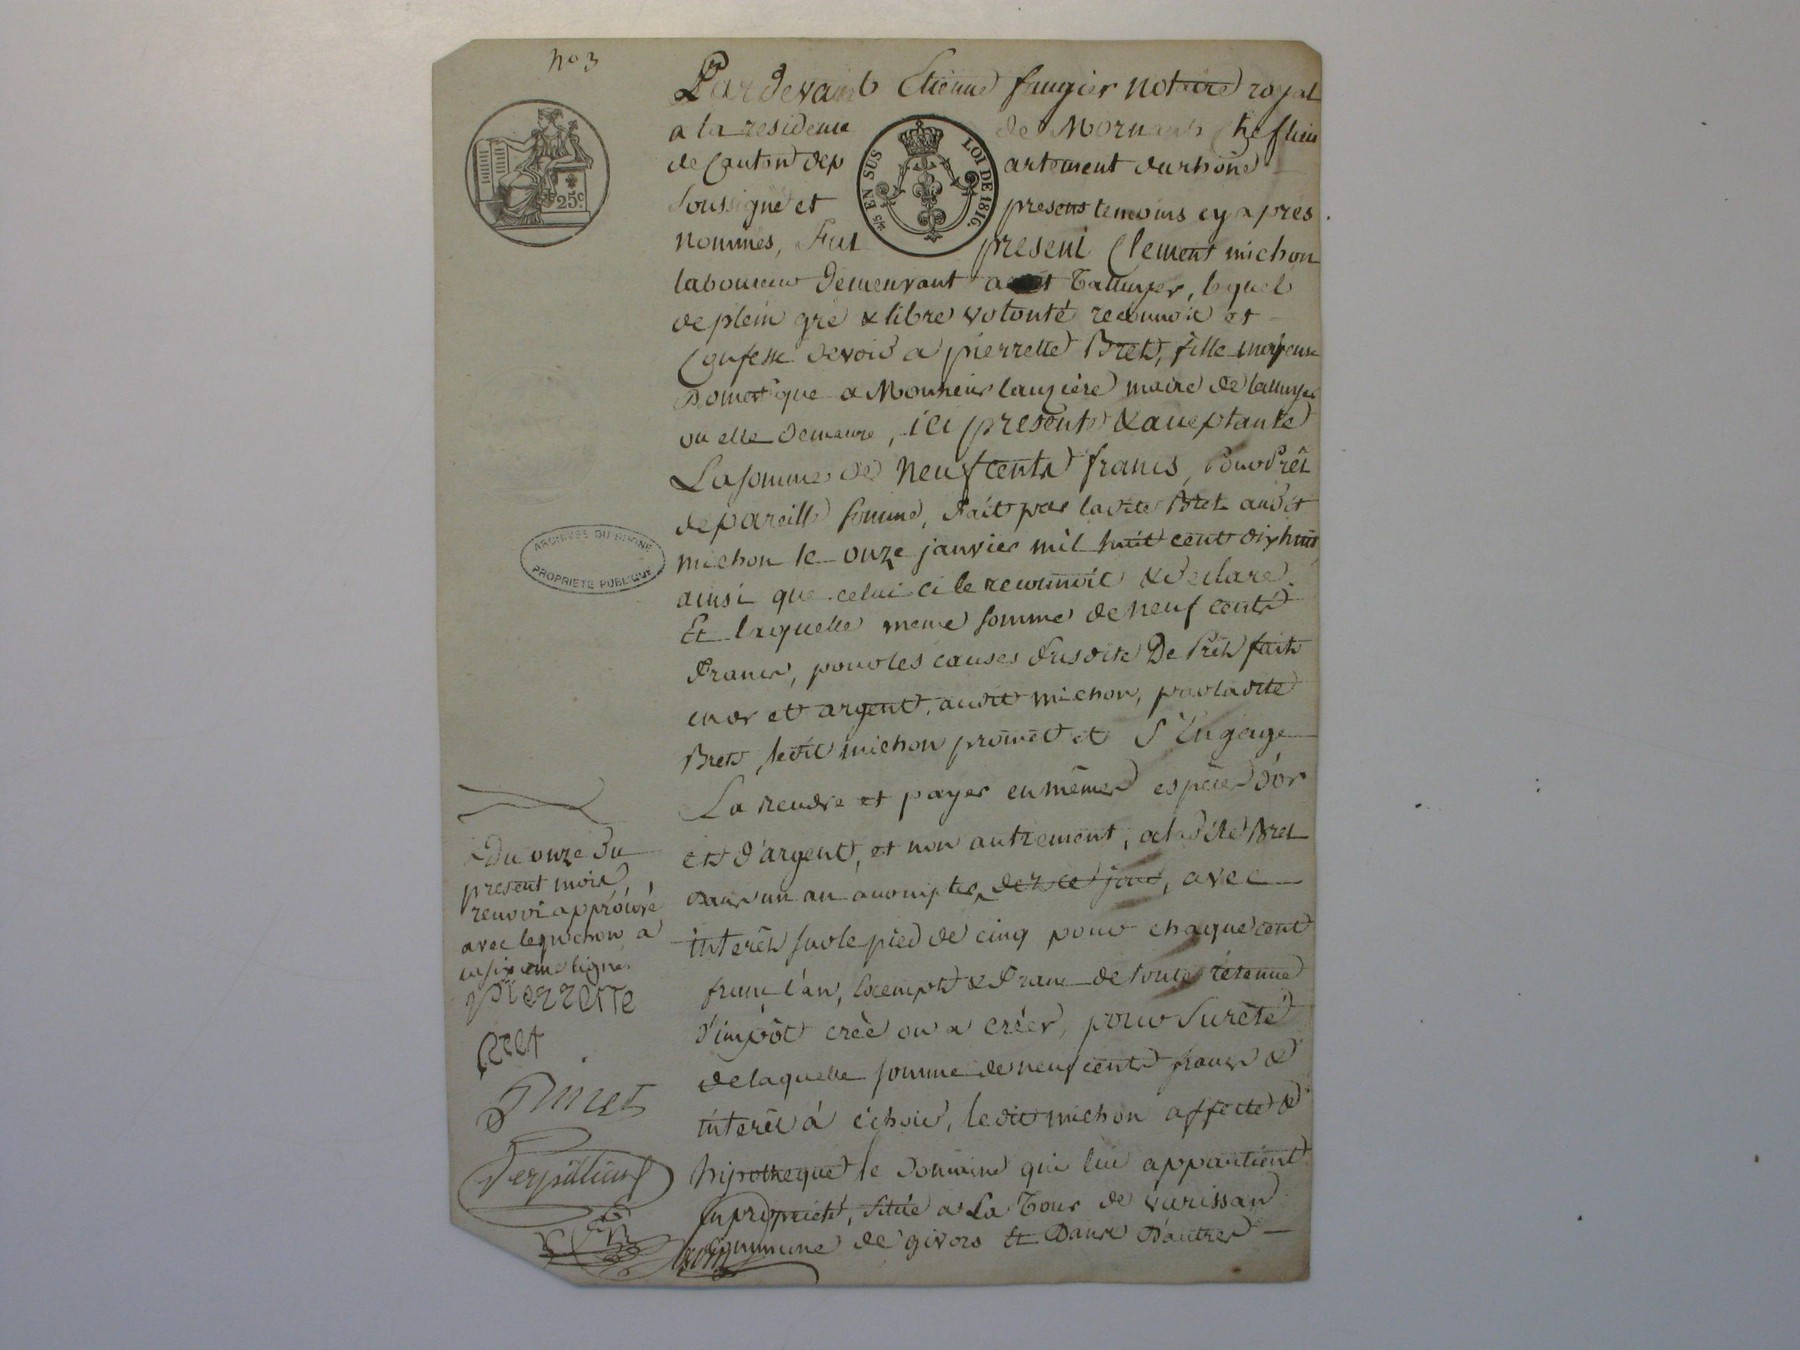 no 3
Par devant Etienne faugier notaire royal
a la residence de Mornant Chef lieu
de Canton dep artement du rhône
Soussigné et presents temoins cy après
nommés, Fut present Clement michon
laboureur demeurant a Taluyer, lequel
de plein gré & libre volonté reconnoit et
Confesse devoir a pierrette Bret, fille majeure
Domestique a Monsieur laugière maire de taluyer
ou elle demeure, ici presente & acceptante
La somme de Neuf cents francs, Pour Prêt
de pareille somme, fait par ladite Bret audit
michon le onze janvier mil huit cent dix huit
ainsi que celui ci le reconnoit & declare.
Et laquelle meme somme de neuf cents
francs, pour les causes susdite De Prêt fait
en or et argent, audit michon, par ladite
Bret, ledit michon promet et S'Engage
La rendre et payer en mêmes espèces d'or
et d'argent, et non autrement, a ladite Bret
Dans un an a compter des ce jour, avec
interêts sur le pied de cinq pour chaque cent
franc l'an, Exempte & franc de toute retenue
d'impôt crèè ou a créer, pour Sureté
de laquelle somme de neuf cents francs &
interêt à échoir, ledit michon affecte &
hipotheque le Domaine qui lui appartient
En propriété, Situé a La Tour de varissan
Commune de givors Et Dans D'autres
Du onze Du
present mois
renvoi approuvé
avec le michon a
ligne
pierrette
Bret
Pinet
Verpillieux
25c.
EN SUS LOI DE 1816.
ARCHIVES DU RHONE
PROPRIETE PUBLIQUE